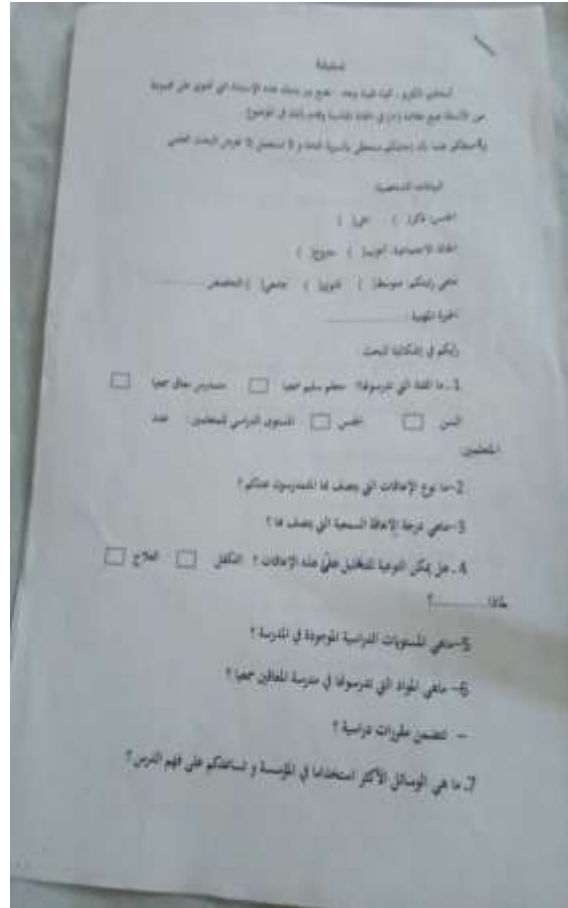 استبيانة
أستاذي الكريم ، تحية طيبة وبعد : نضع بين يديك هذه الإستبانة التي تحتوي على مجموعة
من الأسئلة ضع علامة (x) في الخانة المناسبة وقدم رأيك في الموضوع
علما بأن إجابتكم ستحظى بالسرية التامة و لا تستعمل إلا لغرض البحث العلمي
البيانات الشخصية:
الجنس: ذكر( ) أنثى( )
الحالة الاجتماعية: أعزب( ) متزوج( )
متوسط( ) ثانوي( ) جامعي( ) التخصص ............
الخبرة المهنية : ............
رأيكم في إشكالية البحث :
1. ما الفئة التي تدرسونها؟ متعلم سليم سمعيا □ متمدرس معاق سمعيا □
السن □ الجنس □ المستوى الدراسي للمتعلمين: عدد
المتعلمين:
2-ما نوع الإعاقات التي يتصف بها المتمدرسون عندكم؟
3-ماهي درجة الإعاقة السمعية التي يتصف بها ؟
4. هل يمكن هذه الإعاقات ؟ التكفل □ العلاج □
لماذا............؟
5-ماهي المستويات الدراسية الموجودة في المدرسة ؟
6- ماهي المواد التي تدرسونها في مدرسة المعاقين سمعيا ؟
- تتضمن مقررات دراسية ؟
7. ما هي الوسائل الأكثر استخداما في المؤسسة و تساعدكم على فهم الدرس؟